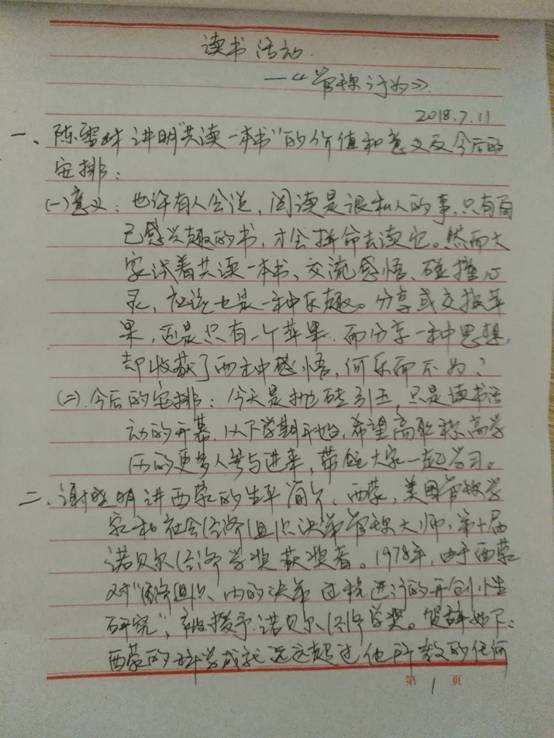 读书活动
——《管理行为》
2018.7.11
一、陈雪林讲明“共读一本书”的价值和意义及今后的
安排：
(一)意义：也许有人会说，阅读是很私人的事，只有自
己感兴趣的书，才会拼命去读它。然而大
家试着共读一本书、交流感悟、碰撞心
灵，应该也是一种乐趣。分享或交换苹
果，还是只有一个苹果，而分享一种思想，
却收获了两种感悟，何乐而不为？
(二)今后的安排：今天是抛砖引玉，只是读书活
动的开幕，以下学期开始，希望高职称高学
历的更多人参与进来，带领大家一起学习。
二、谢晓明讲西蒙的生平简介，西蒙，美国管理学
家和社会经济组织决策管理大师，第十届
诺贝尔经济学奖获奖者。1978年，由于西蒙
对“经济组织内的决策过程进行的开创性
研究”，被授予诺贝尔经济学奖。贺辞如下：
西蒙的科学成就远远超过他所教的任何
第1页